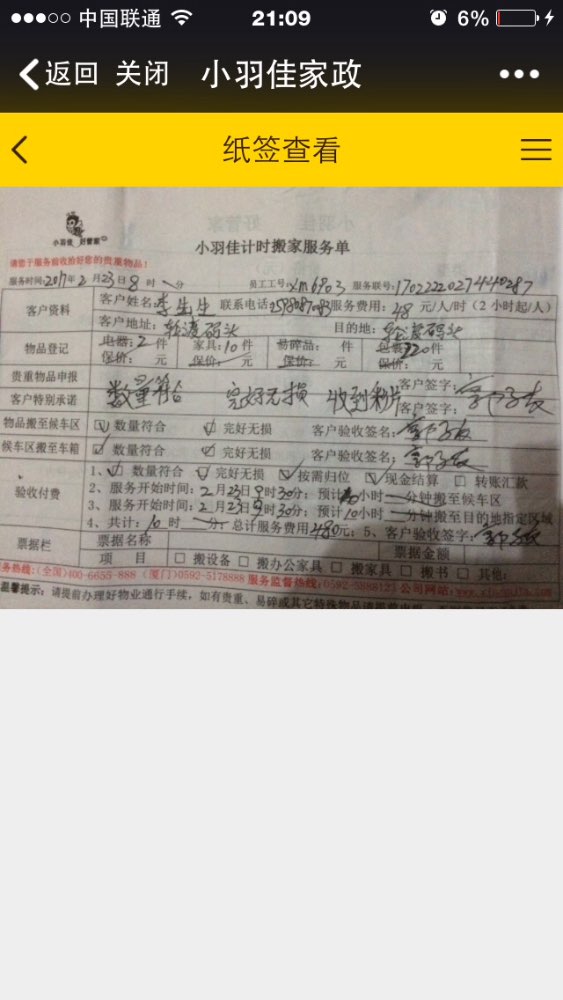 中国联通 21:09 6%
返回 关闭 小羽佳家政
纸签查看
小羽佳 好管家
小羽佳计时搬家服务单
请您于服务前收拾好您的贵重物品！
服务时间:2017年2月23日8时 分 员工工号: xm6903 服务联号:
客户资料
客户姓名:李先生 联系电话 服务费用: 48 元/人/时（2 小时起/人）
客户地址: 轮渡码头 目的地: 轮渡码头
物品登记
电器: 2 件 家具: 10 件 易碎品: 件 包装 20 件
保价: 元 保价: 元 保价: 元 保价: 元
贵重物品申报 客户签字:
客户特别承诺 数量符合 完好无损 收到 客户签字:
物品搬至候车区 ☑ 数量符合 ☑ 完好无损 客户验收签名:
候车区搬至车箱 ☑ 数量符合 ☑ 完好无损 客户验收签名:
验收付费
1、☑ 数量符合 ☑ 完好无损 ☑ 按需归位 ☑ 现金结算 □ 转账汇款
2、服务开始时间: 2月23日9时30分; 预计10小时 分钟搬至候车区
3、服务开始时间: 2月23日9时30分; 预计10小时 分钟搬至目的地指定区域
4、共计: 10 时 分; 总计服务费用480元; 5、客户验收签字:
票据栏 票据名称 票据金额
项 目 □ 搬设备 □ 搬办公家具 □ 搬家具 □ 搬书 □ 其他:
务热线:(全国)400-6655-888 (厦门)0592-5178888 服务监督热线:0592-5888123 公司网站:
温馨提示: 请提前办理好物业通行手续，如有贵重、易碎或其它特殊物品请提前